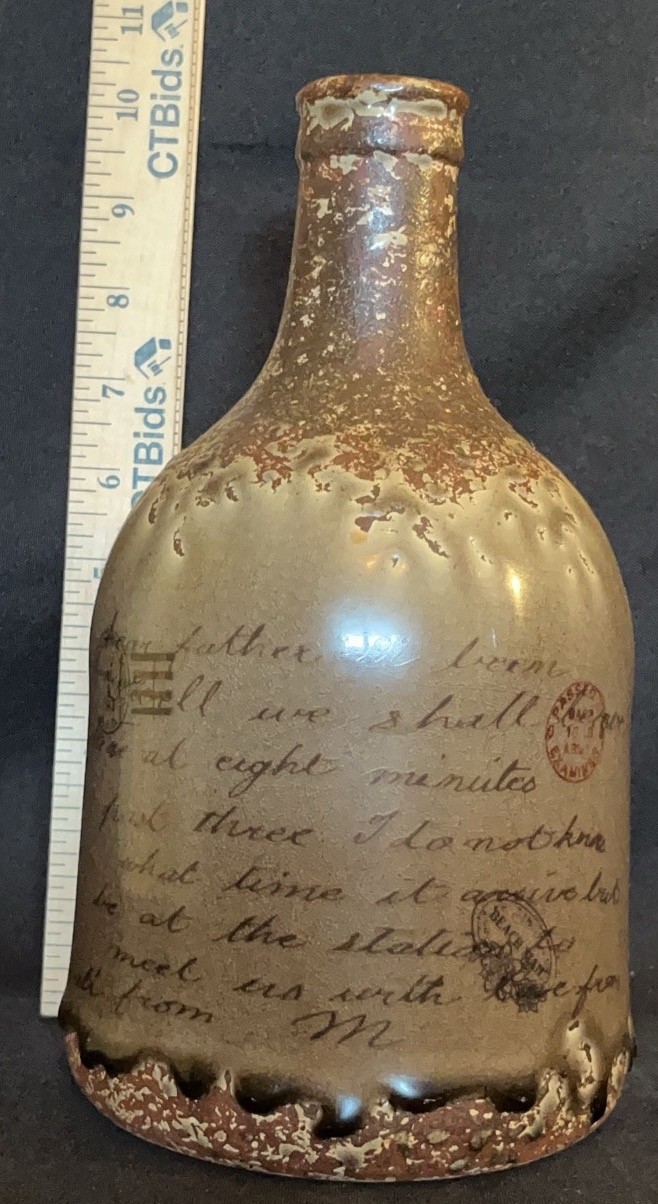 11
10
9
8
7
6
CTBids
CTBids
father been
ll we shall
at eight minutes
past three I do not know
what time it arrive but
be at the station to
meet us with love from
from M
PASSED
EXAMINE
BLACK